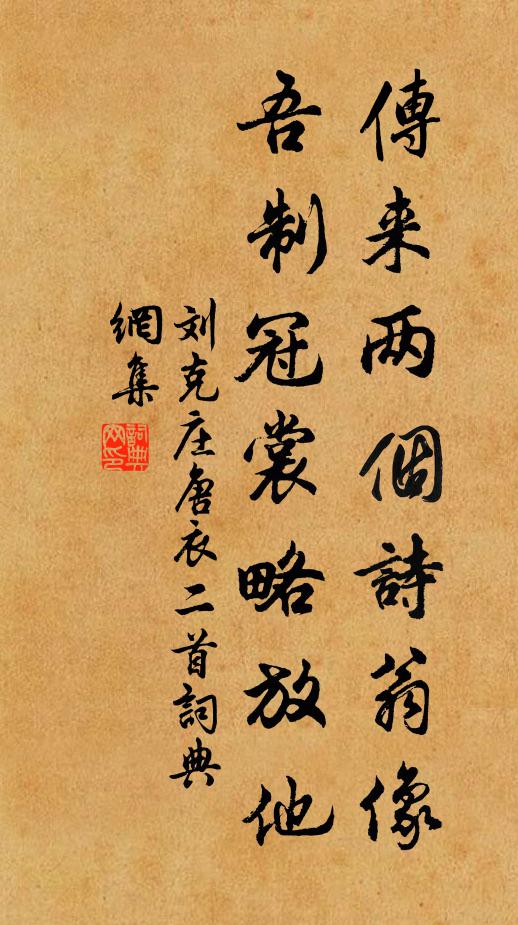 傳来两個詩翁像
吾制冠裳略放他
刘克庄唐衣二首詞典
網集
詞典
网印